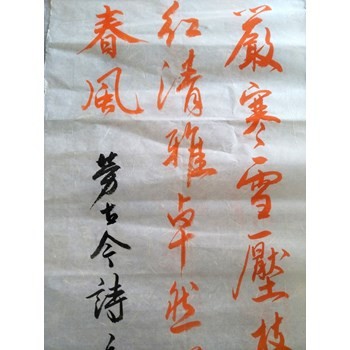 嚴寒雪壓枝
紅清雅卓然
春風
古今詩